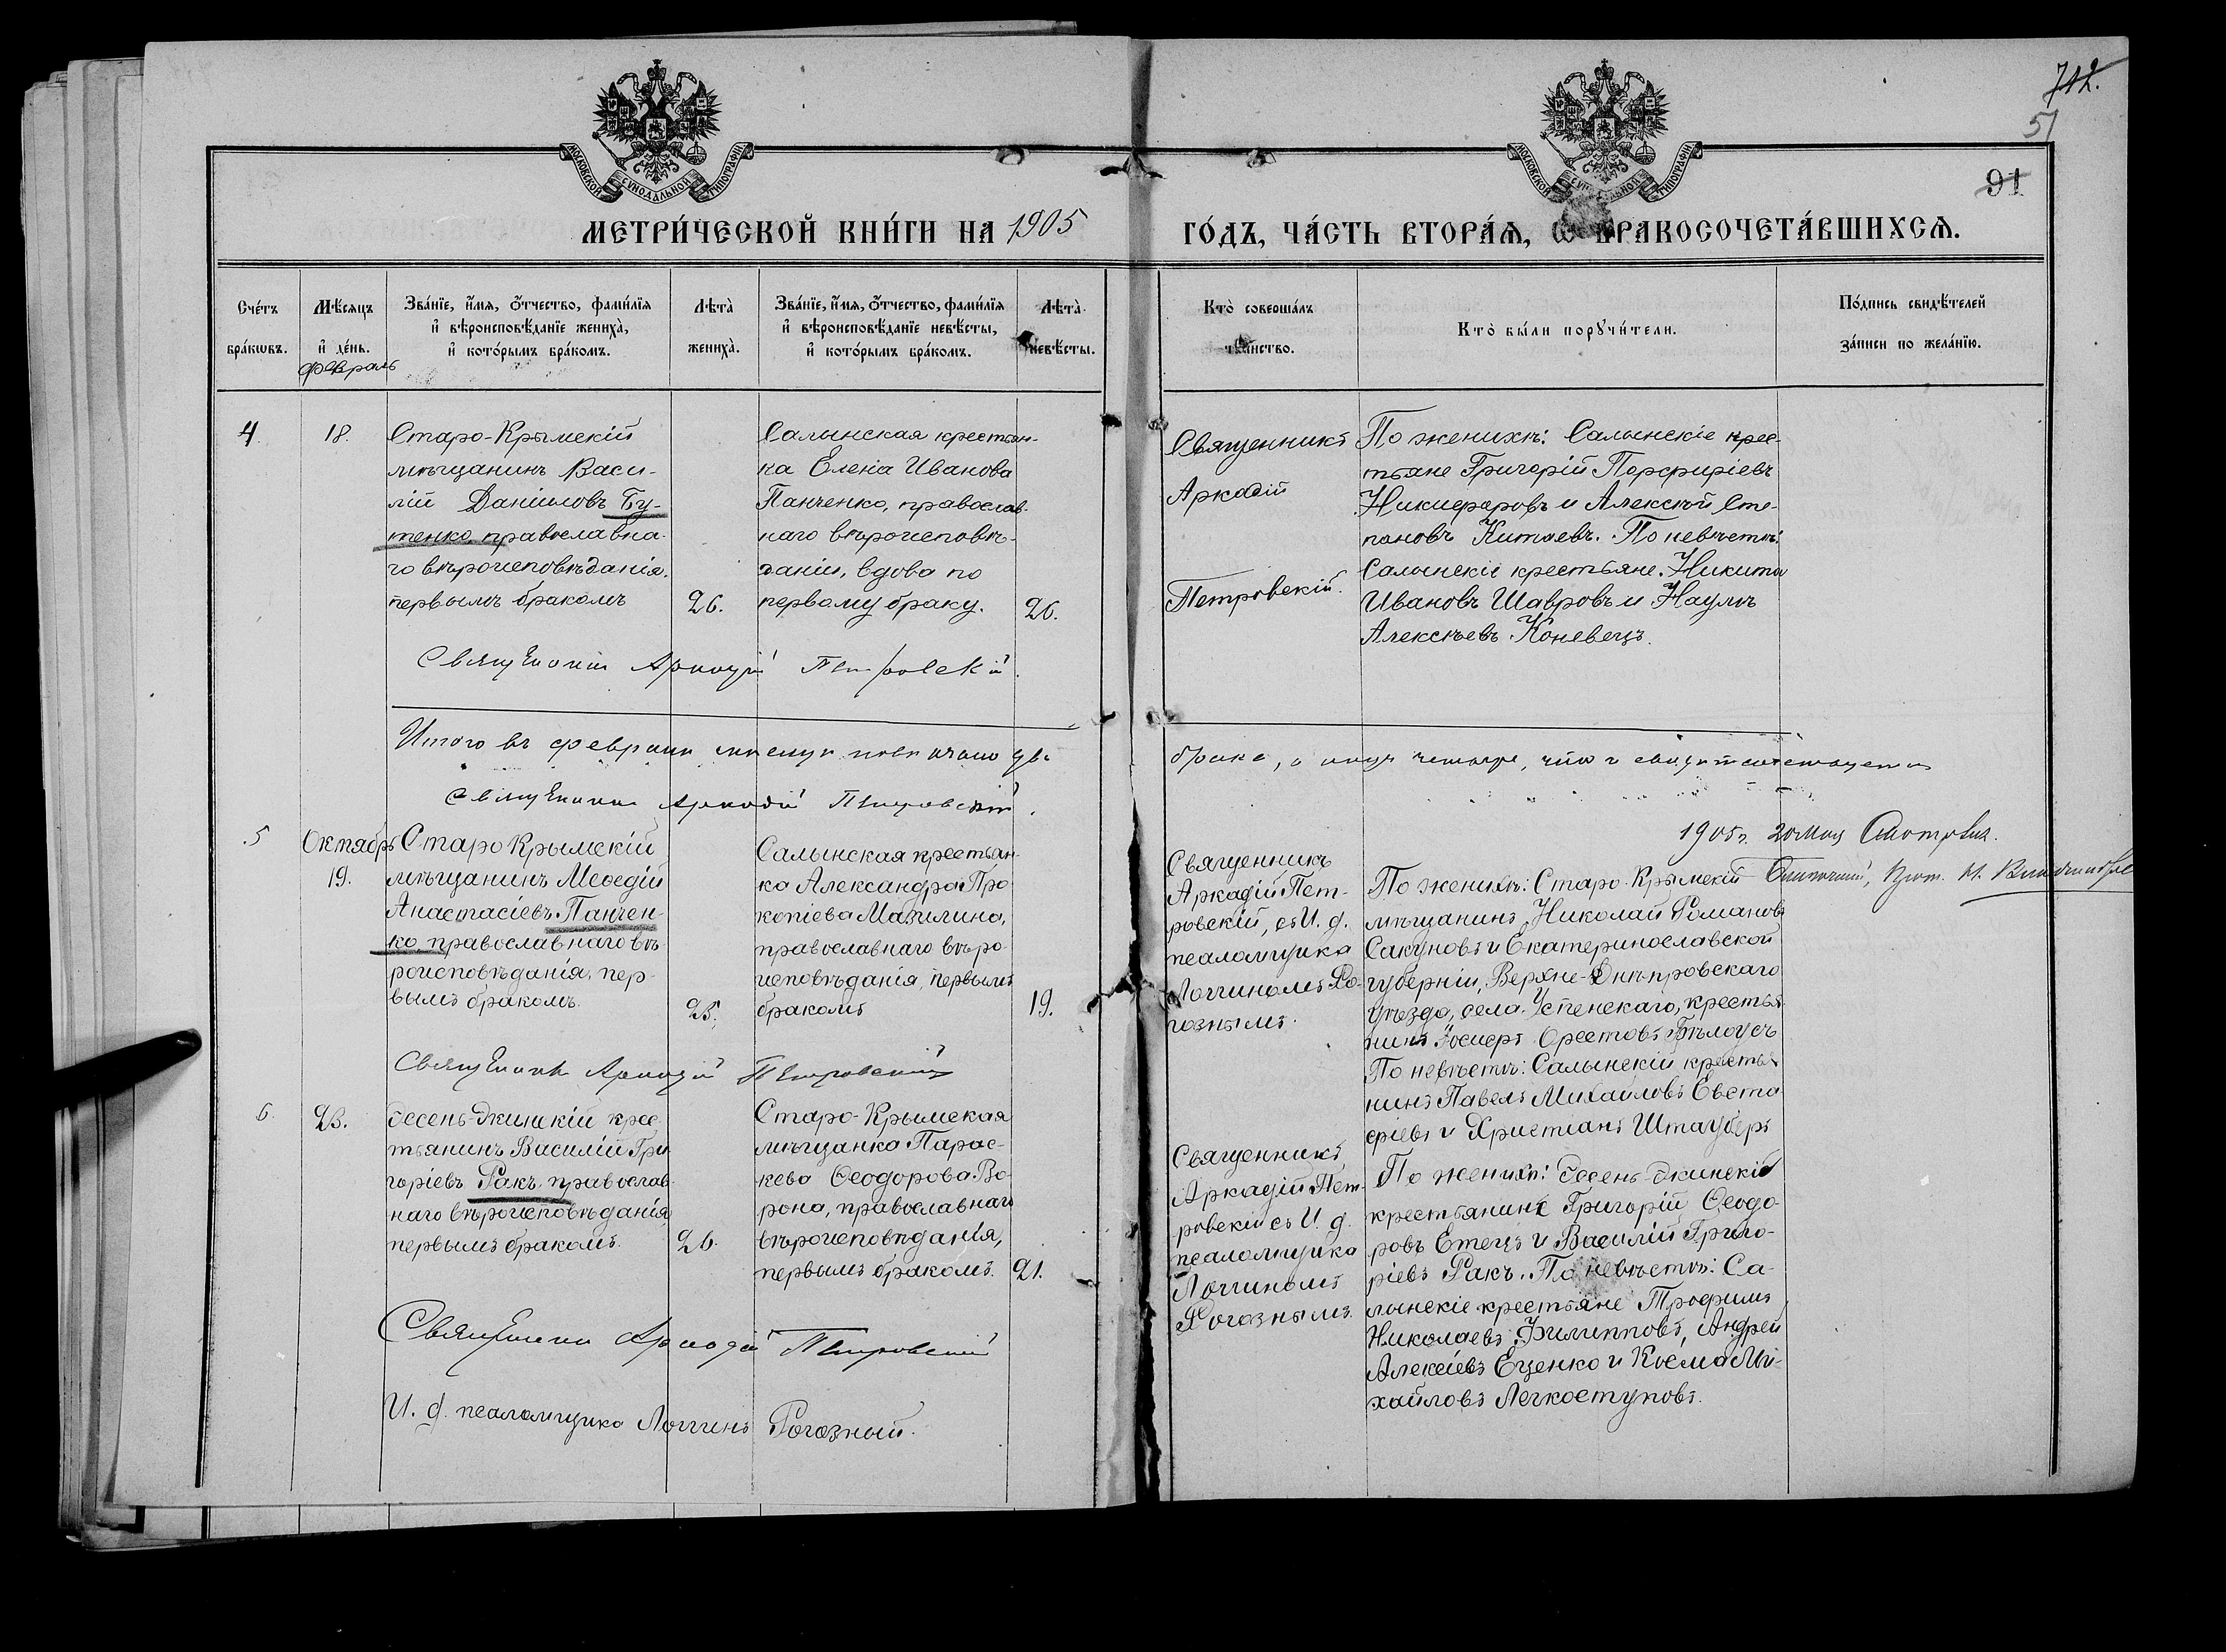 742.
51
91
МОСКОВСКОЙ СѴНОДАЛЬНОЙ ТИПОГРАФІИ
МОСКОВСКОЙ СѴНОДАЛЬНОЙ ТИПОГРАФІИ
МЕТРИ́ЧЕСКОЙ КНИ́ГИ НА 1905
ГО́ДЪ, ЧА́СТЬ ВТОРА́Ѧ, Ѡ БРАКОСОЧЕТА́ВШИХСѦ.
Счетъ
браковъ.
Мѣсяцъ
и день.
Февраль
Званіе, имя, отчество, фамилія
и вѣроисповѣданіе жениха,
и которымъ бракомъ.
Лѣта
жениха.
Званіе, имя, отчество, фамилія
и вѣроисповѣданіе невѣсты,
и которымъ бракомъ.
Лѣта
невѣсты.
Кто совершалъ
таинство.
Кто были поручители.
Подпись свидѣтелей
записи по желанію.
4.
18.
Старо-Крымскій
мѣщанинъ Васи-
лій Даніиловъ Бу-
тенко, православна-
го вѣроисповѣданія.
первымъ бракомъ
26.
Салынская крестьян-
ка Елена Иванова
Панченко, православ-
наго вѣроисповѣ-
данія, вдова по
первому браку.
26.
Священникъ
Аркадій
Петровскій.
По женихѣ: Салынскіе крес-
тьяне Григорій Порфиріевъ
Никифоровъ и Алексѣй Сте-
пановъ Китаевъ. По невѣстѣ:
Салынскіе крестьяне Никита
Ивановъ Шавровъ и Наумъ
Алексѣевъ Коневецъ.
Священникъ Аркадій Петровскій.
Итого въ февралѣ мѣсяцѣ повѣнчано два
брака, а четыре, что и свидѣтельствуется
Священникъ Аркадій Петровскій.
1905 г. 20 Мая Смотрѣлъ.
5
Октябрь
19.
Старо Крымскій
мѣщанинъ Меѳодій
Анастасіевъ Панчен-
ко, православнаго вѣ-
роисповѣданія, пер-
вымъ бракомъ.
25.
Салынская крестьян-
ка Александра Про-
копіева Мазилина,
православнаго вѣро-
исповѣданія, первымъ
бракомъ
19.
Священникъ
Аркадій Пет-
ровскій, съ И. д.
псаломщика
Логгиномъ Ро-
гознымъ.
По женихѣ: Старо-Крымскій
мѣщанинъ Николай Романовъ
Сакуновъ и Екатеринославской
губерніи, Верхне-Днѣпровскаго
уѣзда, села Успенскаго, крестья-
нинъ Іосифъ Орестовъ Бѣлоусъ
По невѣстѣ: Салынскій крестья-
нинъ Павелъ Михайловъ Евста-
фіевъ и Христіанъ Штауберъ
Священникъ Аркадій Петровскій
6.
23.
Эссень-Экинскій крес-
тьянинъ Василій Гри-
горіевъ Ракъ, православ-
наго вѣроисповѣданія
первымъ бракомъ.
26.
Старо-Крымская
мѣщанка Парас-
кева Ѳеодорова Во-
рона, православнаго
вѣроисповѣданія,
первымъ бракомъ.
21.
Священникъ
Аркадій Пет-
ровскій съ И. д.
псаломщика
Логгиномъ
Рогознымъ.
По женихѣ: Эссень-Экинскій
крестьянинъ Григорій Ѳеодо-
ровъ Етецъ и Василій Григо-
ріевъ Ракъ. По невѣстѣ: Са-
лынскіе крестьяне Трофимъ
Николаевъ Филипповъ, Андрей
Алексіевъ Еценко и Косма Ми-
хайловъ Легкоступовъ.
Священникъ Аркадій Петровскій
И. д. псаломщика Логгинъ Рогозный.